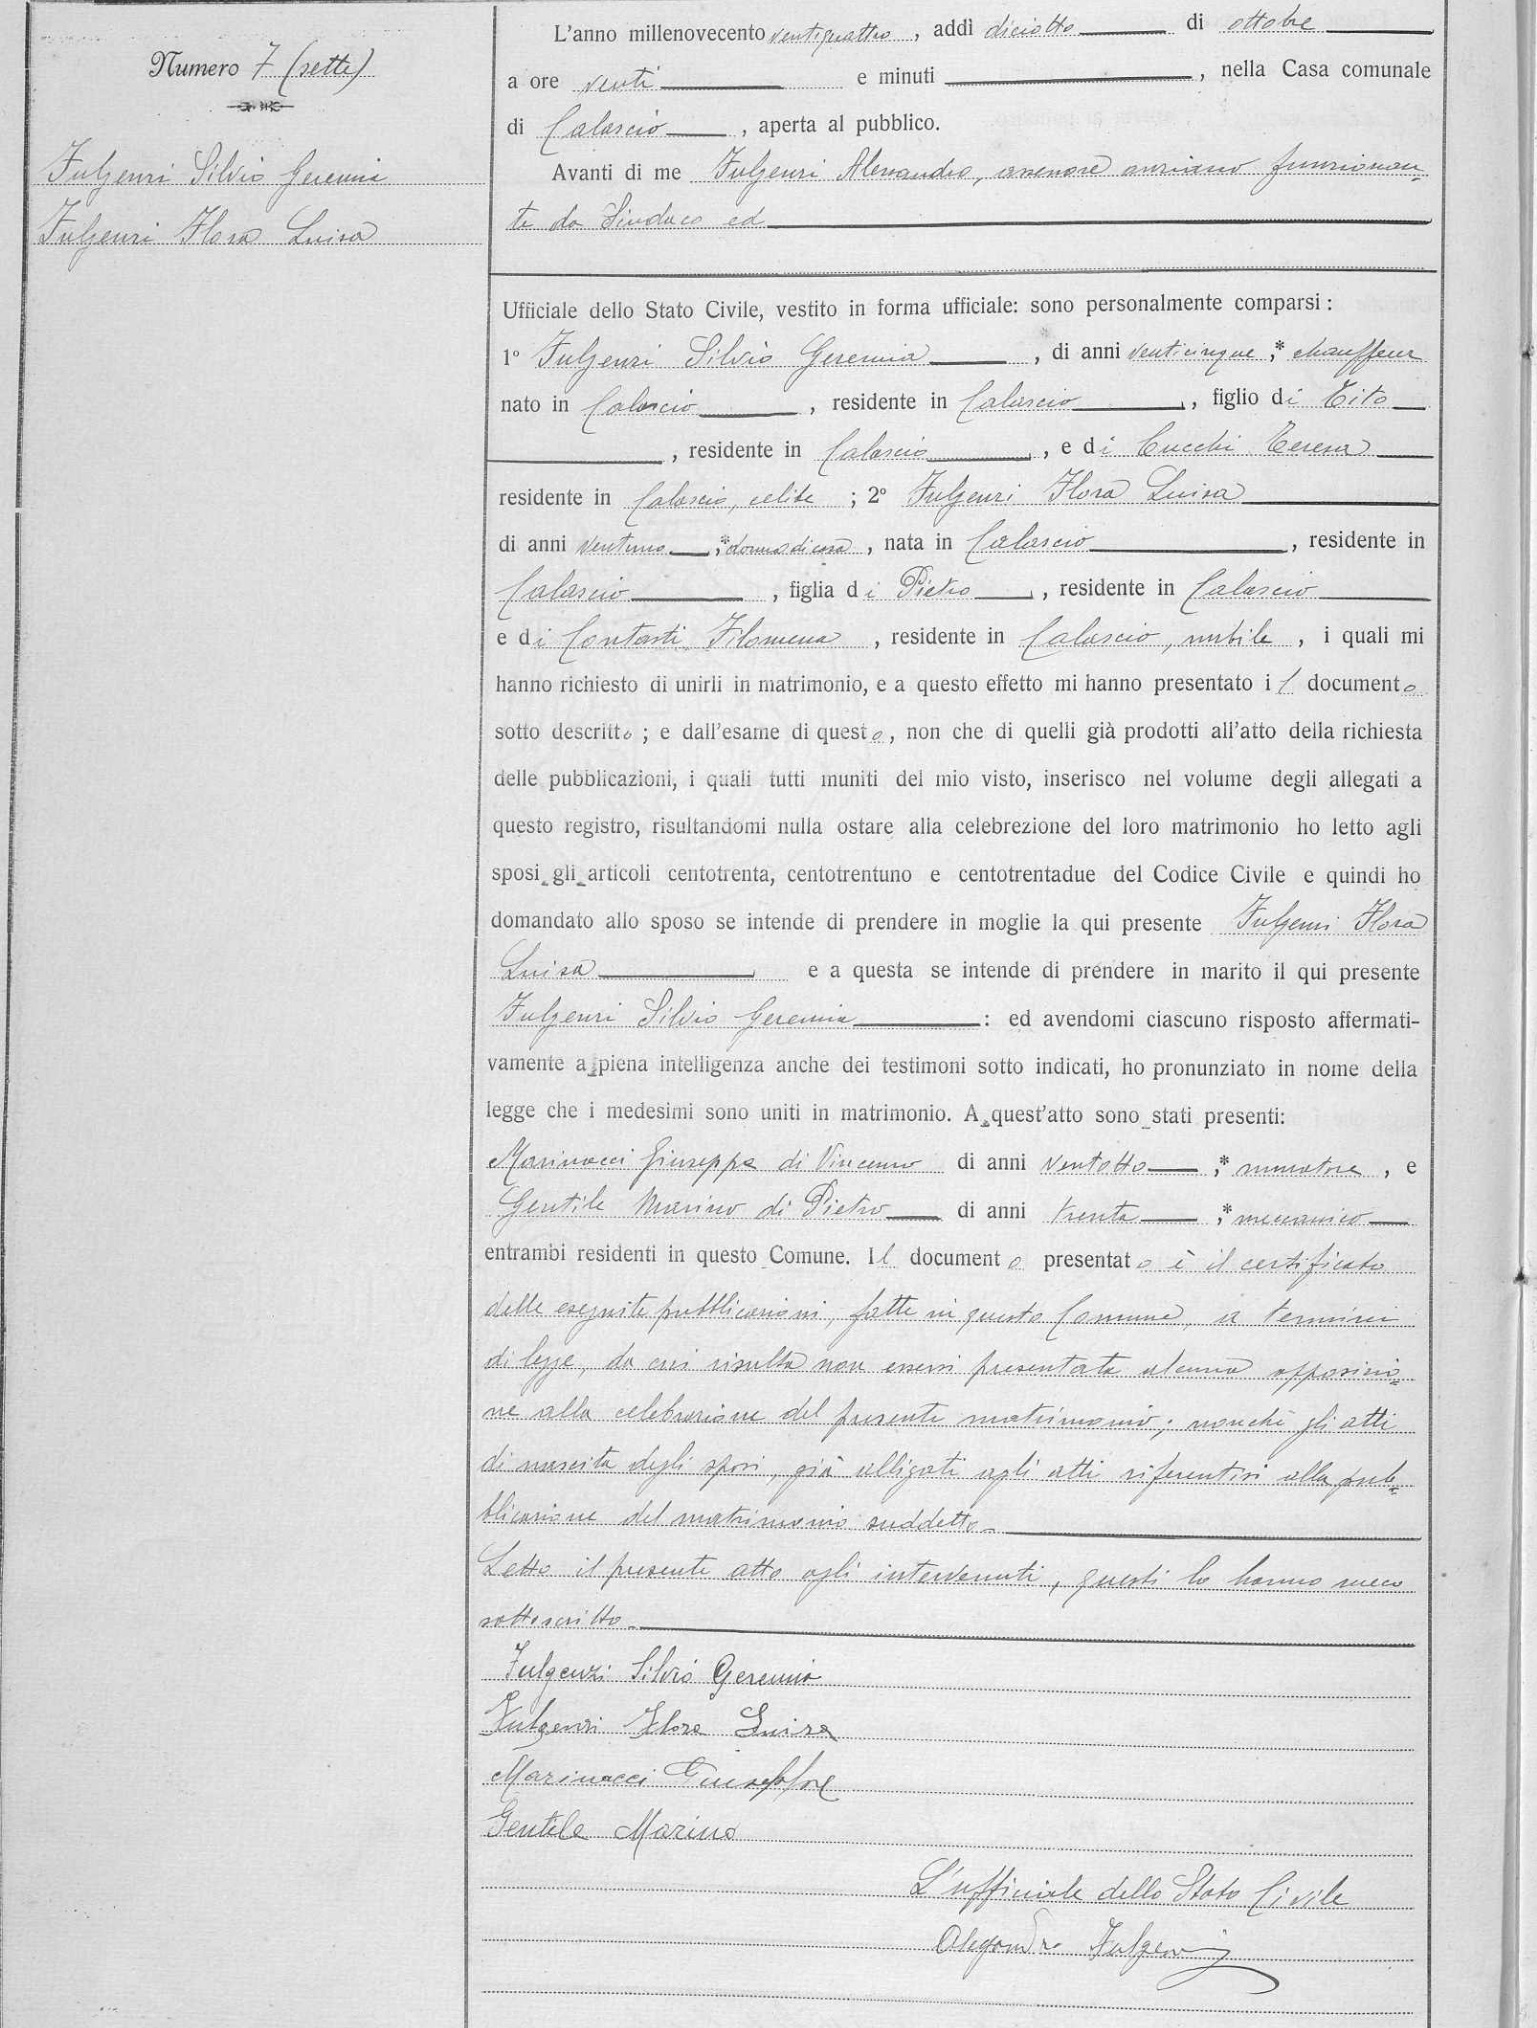 Numero 7 (sette)
Fulgenzi Silvio Geremia
Fulgenzi Flora Luisa
L'anno millenovecento ventiquattro, addì diciotto di ottobre
a ore venti e minuti , nella Casa comunale
di Calascio, aperta al pubblico.
Avanti di me Fulgenzi Alessandro, assessore anziano funzionan-
te da Sindaco ed
Ufficiale dello Stato Civile, vestito in forma ufficiale: sono personalmente comparsi:
1º Fulgenzi Silvio Geremia, di anni venticinque,* chauffeur
nato in Calascio, residente in Calascio, figlio di Tito
, residente in Calascio, e di Cucchi Teresa
residente in Calascio, celibe; 2º Fulgenzi Flora Luisa
di anni ventuno,* donna di casa, nata in Calascio, residente in
Calascio, figlia di Pietro, residente in Calascio
e di Contasti Filomena, residente in Calascio, nubile, i quali mi
hanno richiesto di unirli in matrimonio, e a questo effetto mi hanno presentato il documento
sotto descritto; e dall'esame di questo, non che di quelli già prodotti all'atto della richiesta
delle pubblicazioni, i quali tutti muniti del mio visto, inserisco nel volume degli allegati a
questo registro, risultandomi nulla ostare alla celebrezione del loro matrimonio ho letto agli
sposi gli articoli centotrenta, centotrentuno e centotrentadue del Codice Civile e quindi ho
domandato allo sposo se intende di prendere in moglie la qui presente Fulgenzi Flora
Luisa e a questa se intende di prendere in marito il qui presente
Fulgenzi Silvio Geremia: ed avendomi ciascuno risposto affermati-
vamente a piena intelligenza anche dei testimoni sotto indicati, ho pronunziato in nome della
legge che i medesimi sono uniti in matrimonio. A quest'atto sono stati presenti:
Marinacci Giuseppe di Vincenzo di anni ventotto,* muratore, e
Gentile Marino di Pietro di anni trenta,* meccanico
entrambi residenti in questo Comune. Il documento presentato è il certificato
delle eseguite pubblicazioni, fatte in questo Comune, a termini
di legge, da cui risulta non essersi presentata alcuna opposizio=
ne alla celebrazione del presente matrimonio; nonchè gli atti
di nascita degli sposi, già alligati agli atti riferentisi alla pub=
blicazione del matrimonio suddetto.
Letto il presente atto agli intervenuti, questi lo hanno meco
sottoscritto.
Fulgenzi Silvio Geremia
Fulgenzi Flora Luisa
Marinacci Giuseppe
Gentile Marino
L'ufficiale dello Stato Civile
Alessandro Fulgenzi